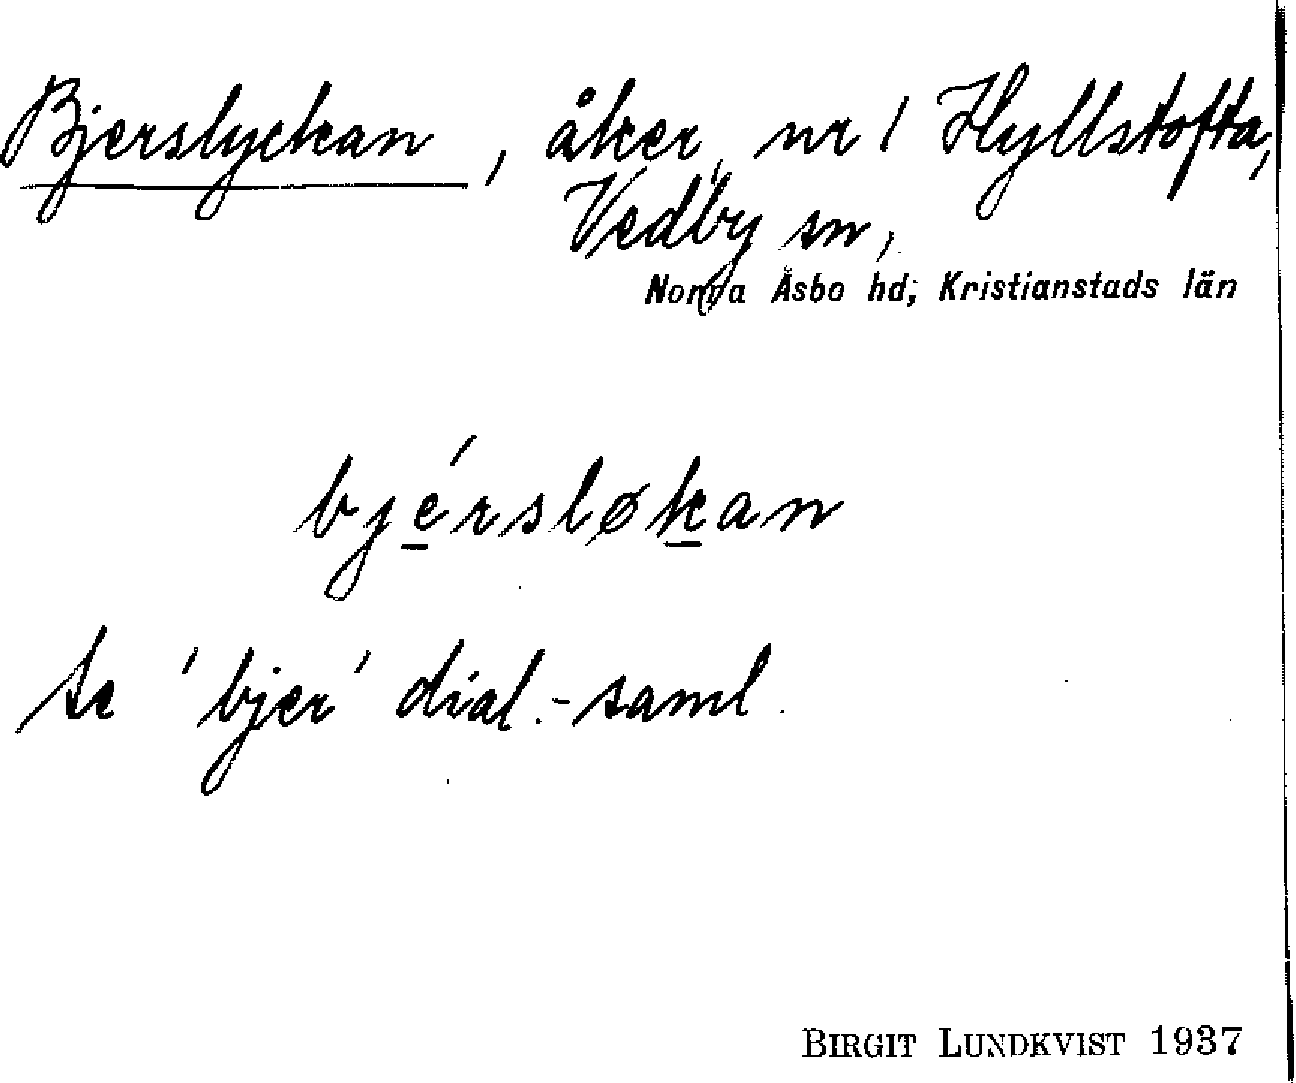 Bjerslyckan, åker, nr 1 Hyllstofta,
Vedby sn,
Norra Åsbo hd; Kristianstads län
bjérsløkan
Se 'bjer' dial.-saml.
BIRGIT LUNDKVIST 1937